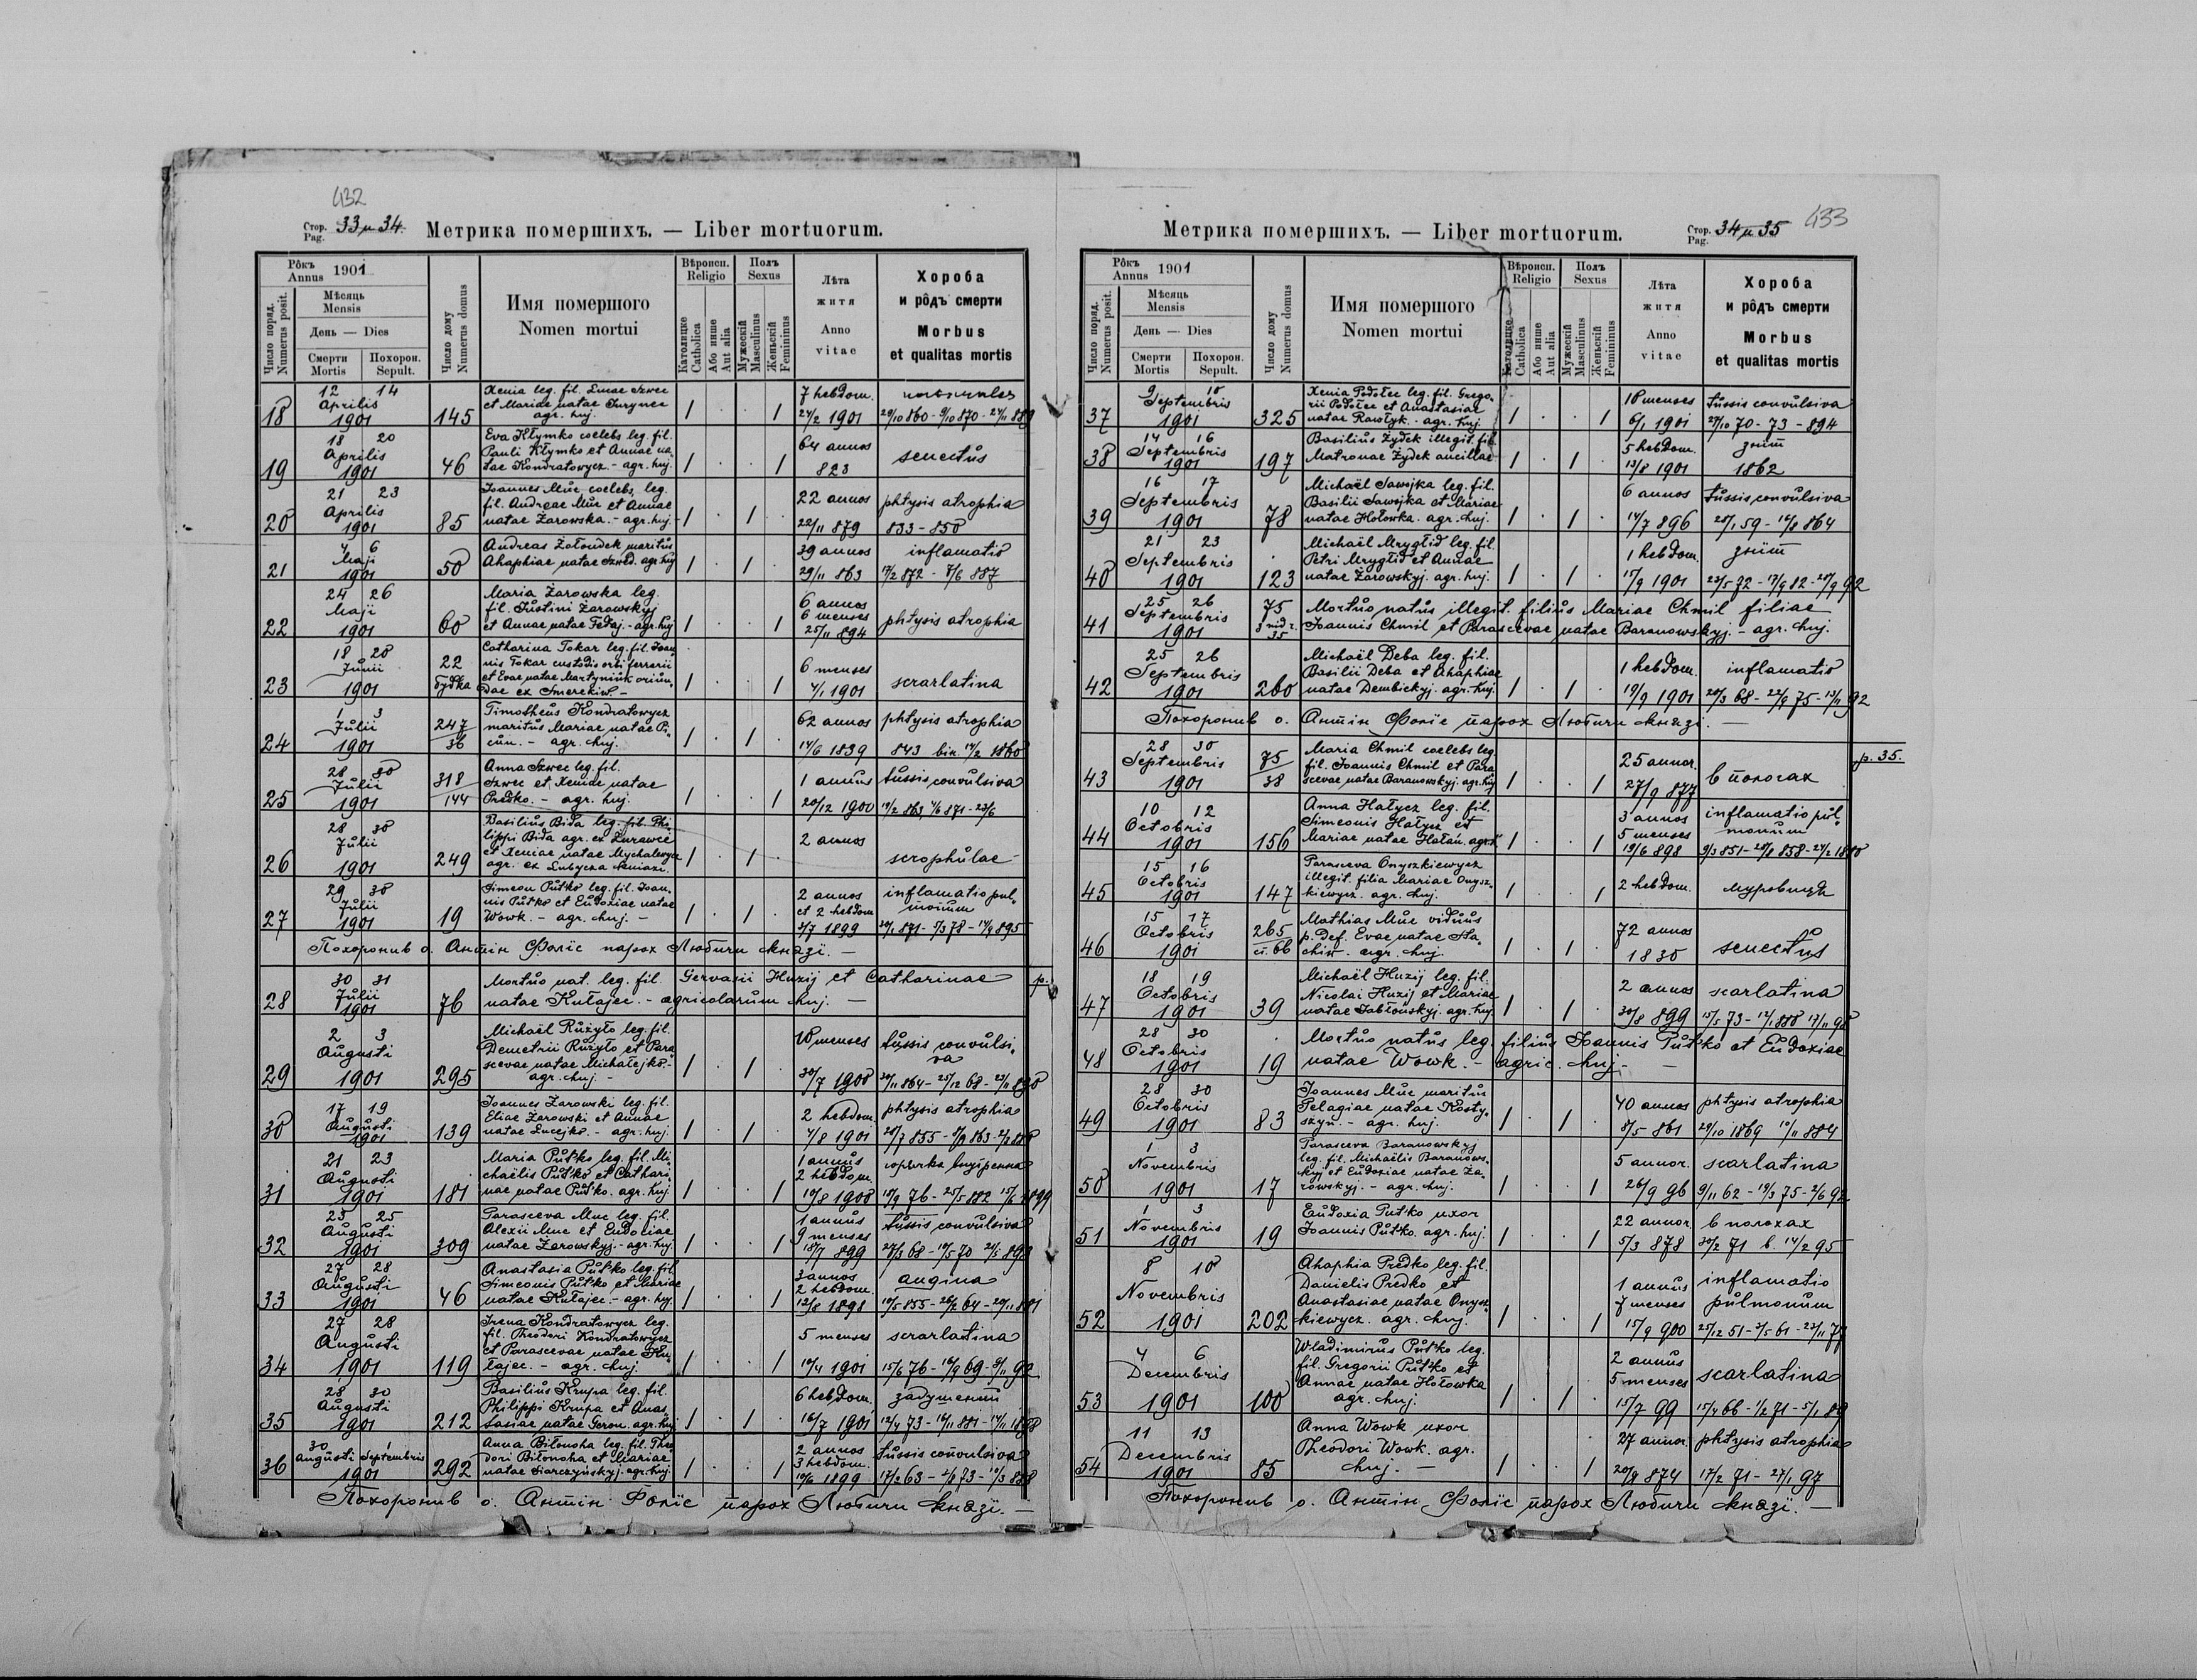 432
Стор. Pag. 33 и 34. Метрика помершихъ. — Liber mortuorum.
Рôкъ Annus 1901
Число поряд. Numerus posit.
Мѣсяць Mensis
День — Dies
Смерти Mortis
Похорон. Sepult.
Число дому Numerus domus
Имя помершого Nomen mortui
Вѣроисп. Religio
Католицке Catholica
Або инше Aut alia
Полъ Sexus
Мужескій Masculinus
Женьскій Femininus
Лѣта житя Anno vitae
Хороба и рôдъ смерти Morbus et qualitas mortis
12 14 Aprilis 1901
18 145
Xenia leg. fil. Lucae Szwec
et Mariae natae Jurynec
agr. huj.
7 hebdom.
24/2 1901
18 20 Aprilis 1901
19 46
Eva Kłymko coelebs leg. fil.
Pauli Kłymko et Annae na-
tae Kondratowycz - agr. huj.
64 annos
823
senectus
21 23 Aprilis 1901
20 85
Joannes Muc coelebs, leg.
fil. Andreae Muc et Annae
natae Żarowska. - agr. huj.
22 annos
22/11 879
phtysis atrophia
833 - 850
4 6 Maji 1901
21 50
Andreas Żołondek maritus
Ahaphiae natae Szwed. agr. huj
39 annos
29/11 863
inflamatio
17/2 872 - 7/6 887
24 26 Maji 1901
22 60
Maria Żarowska leg.
fil. Justini Żarowskyj
et Annae natae Fedaj. - agr. huj
6 annos
6 menses
25/11 894
phtysis atrophia
18 20 Junii 1901
23 22 будка
Catharina Tokar leg. fil. Joan
nis Tokar custodis orbi ferrarii
et Evae natae Martyniuk oriun,
dae ex Smerekiw. -
6 menses
4/1 1901
scrarlatina
1 3 Julii 1901
24 247/36
Timotheus Kondratowycz
maritus Mariae natae Pi
cun. - agr. huj.
62 annos
14/6 1839
phtysis atrophia
843 bin. 14/2 1860
28 30 Julii 1901
25 318/144
Anna Szwec leg. fil.
Szwec et Xeniae natae
Predko. - agr. huj.
1 annus
20/12 1900
tussis convulsiva
28 30 Julii 1901
26 249
Basilius Bida leg. fil. Phi
lippi Bida agr. ex Żurawce
et Xeniae natae Mychalewycz
agr. ex Lubycza Kniazi.
2 annos
scrophulae
29 30 Julii 1901
27 19
Simeon Put'ko leg. fil. Joan,
nis Put'ko et Eudoxiae natae
Wowk. - agr. huj. -
2 annos
et 2 hebdom
3/7 1899
inflamatio pul,
monum
Похоронив о. Антін Фоліс парох Любичи Князї. —
30 31 Julii 1901
28 76
Mortuo nat. leg. fil. Gervasii Huzij et Catharinae
natae Kułajec. - agricolarum huj. —
p.
2 3 Augusti 1901
29 295
Michaël Rużyło leg. fil.
Demetrii Rużyło et Para
scevae natae Michałejko. -
agr. huj. -
10 menses
30/7 1900
tussis convulsi,
va
17 19 Augusti 1901
30 139
Joannes Żarowski leg. fil.
Eliae Żarowski et Annae
natae Lucejko. - agr. huj.
2 hebdom.
4/8 1901
phtysis atrophia
21 23 Augusti 1901
31 181
Maria Put'ko leg. fil. Mi
chaëlis Put'ko et Cathari
nae natae Put'ko. agr. huj.
1 annus
2 hebdom.
10/8 1900
23 25 Augusti 1901
32 309
Parasceva Muc leg. fil.
Alexii Muc et Eudoxiae
natae Żarowskyj. - agr. huj
1 annus
9 menses
18/7 899
tussis convulsiva
27 28 Augusti 1901
33 46
Anastasia Put'ko leg. fil
Simeonis Put'ko et Mariae
natae Kułajec. - agr. huj.
3 annos
2 hebdom.
12/8 1898
angina
27 28 Augusti 1901
34 119
Irena Kondratowycz leg.
fil. Theodori Kondratowycz
et Parascevae natae Ku
łajec. - agr. huj.
5 menses
10/4 1901
scrarlatina
28 30 Augusti 1901
35 212
Basilius Krupa leg. fil.
Philippi Krupa et Anas
tasiae natae Goron. agr. huj
6 hebdom.
16/7 1901
30 Augusti 1 Septembris 1901
36 292
Anna Biłonoha leg. fil. Theo
dori Biłonoha et Mariae
natae Siarczyńskyj. agr. huj.
2 annos
3 hebdom.
10/6 1899
tussis convulsiva
Похоронив о. Антін Фоліс парох Любичи Князї. —
Метрика помершихъ. — Liber mortuorum. Стор. Pag. 34 и 35
433
Рôкъ Annus 1901
Число поряд. Numerus posit.
Мѣсяць Mensis
День — Dies
Смерти Mortis
Похорон. Sepult.
Число дому Numerus domus
Имя помершого Nomen mortui
Вѣроисп. Religio
Католицке Catholica
Або инше Aut alia
Полъ Sexus
Мужескій Masculinus
Женьскій Femininus
Лѣта житя Anno vitae
Хороба и рôдъ смерти Morbus et qualitas mortis
9 10 Septembris 1901
37 325
Xenia Podołec leg. fil. Grego,
rii Podołec et Anastasiae
natae Rawłyk. - agr. huj.
10 menses
6/1 1901
tussis convulsiva
27/10 70 - 73 - 894
14 16 Septembris 1901
38 197
Basilius Żydek illegit. fil.
Matronae Żydek ancillae
5 hebdom.
13/8 1901
1862
16 17 Septembris 1901
39 78
Michaël Sawojka leg. fil.
Basilii Sawojka et Mariae
natae Hołowka. agr. huj.
6 annos
14/7 896
tussis convulsiva
21 23 Septembris 1901
40 123
Michaël Mrygłid leg. fil.
Petri Mrygłid et Annae
natae Żarowskyj. agr. huj.
1 hebdom.
15/9 1901
25 26 Septembris 1901
41 75
Mortuo natus illegit. filius Mariae Chmil filiae
Joannis Chmil et Parascevae natae Baranowskyj. - agr. huj.
25 26 Septembris 1901
42 260
Michaël Deba leg. fil.
Basilii Deba et Ahaphiae
natae Dembickyj. agr. huj.
1 hebdom.
19/9 1901
inflamatio
Похоронив о. Антін Фоліс парох Любичи Князї. —
p. 35.
28 30 Septembris 1901
43 75/38
Maria Chmil coelebs leg.
fil. Joannis Chmil et Para
scevae natae Baranowskyj. agr. huj
25 annor.
27/9 877
в пологах
10 12 Octobris 1901
44 156
Anna Hałycz leg. fil.
Simeonis Hałycz et
Mariae natae Hałań. agr. h
3 annos
5 menses
19/6 898
inflamatio pul,
monum
15 16 Octobris 1901
45 147
Parasceva Onyszkiewycz
illegit. filia Mariae Onysz,
kiewycz. agr. huj.
2 hebdom.
15 17 Octobris 1901
46 265
Mathias Muc viduus
p. def. Evae natae Sta,
chiw. agr. huj.
72 annos
1830
senectus
18 19 Octobris 1901
47 39
Michaël Huzij leg. fil.
Nicolai Huzij et Mariae
natae Jabłonskyj. agr. huj
2 annos
30/8 899
scarlatina
28 30 Octobris 1901
48 19
Mortuo natus leg. filius Joannis Put'ko et Eudoxiae
natae Wowk. - agric. huj. -
28 30 Octobris 1901
49 83
Joannes Muc maritus
Pelagiae natae Kosty,
szyn. - agr. huj.
40 annos
8/5 861
phtysis atrophia
29/10 1869 10/11 884
1 3 Novembris 1901
50 17
Parasceva Baranowskyj
leg. fil. Michaëlis Baranows,
kyj et Eudoxiae natae Ża,
rowskyj. - agr. huj.
5 annor.
26/9 96
scarlatina
1 3 Novembris 1901
51 19
Eudoxia Put'ko uxor
Joannis Put'ko. agr. huj.
22 annor.
5/3 878
в пологах
8 10 Novembris 1901
52 202
Ahaphia Predko leg. fil.
Danielis Predko et
Anastasiae natae Onysz,
kiewycz. agr. huj.
1 annus
7 menses
15/9 900
inflamatio
pulmonum
4 6 Decembris 1901
53 100
Wladimirus Put'ko leg.
fil. Gregorii Put'ko et
Annae natae Hołowka
agr. huj.
2 annus
5 menses
15/7 99
scarlatina
11 13 Decembris 1901
54 85
Anna Wowk uxor
Theodori Wowk. agr.
huj. —
27 annor.
20/9 874
phtysis atrophia
17/2 71 - 27/1 97
Похоронив о. Антін Фоліс парох Любичи Князї. —